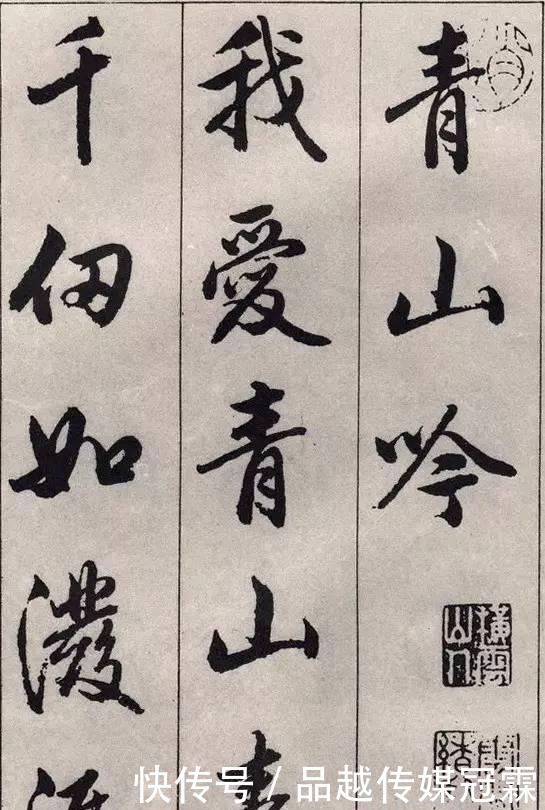 青山吟
橫雲山人
我愛青山
千仞如潑
快传号/品越传媒冠霖